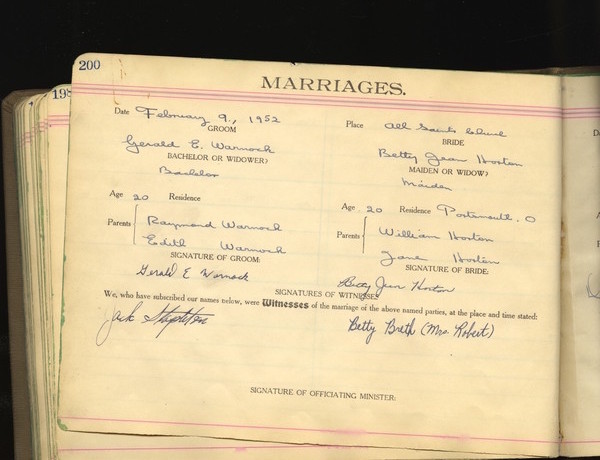 200
198
MARRIAGES.
Date February 9., 1952 Place All Saints Church
GROOM BRIDE
Gerald E. Warnock Betty Jean Horton
BACHELOR OR WIDOWER? MAIDEN OR WIDOW?
Bachelor Maiden
Age 20 Residence Age 20 Residence Portsmouth, O
Parents Raymond Warnock Parents William Horton
Edith Warnock Jane Horton
SIGNATURE OF GROOM: SIGNATURE OF BRIDE:
Gerald E Warnock Betty Jean Horton
SIGNATURES OF WITNESSES
We, who have subscribed our names below, were Witnesses of the marriage of the above named parties, at the place and time stated:
Jack Stapleton Betty Breth (Mrs. Robert)
SIGNATURE OF OFFICIATING MINISTER: